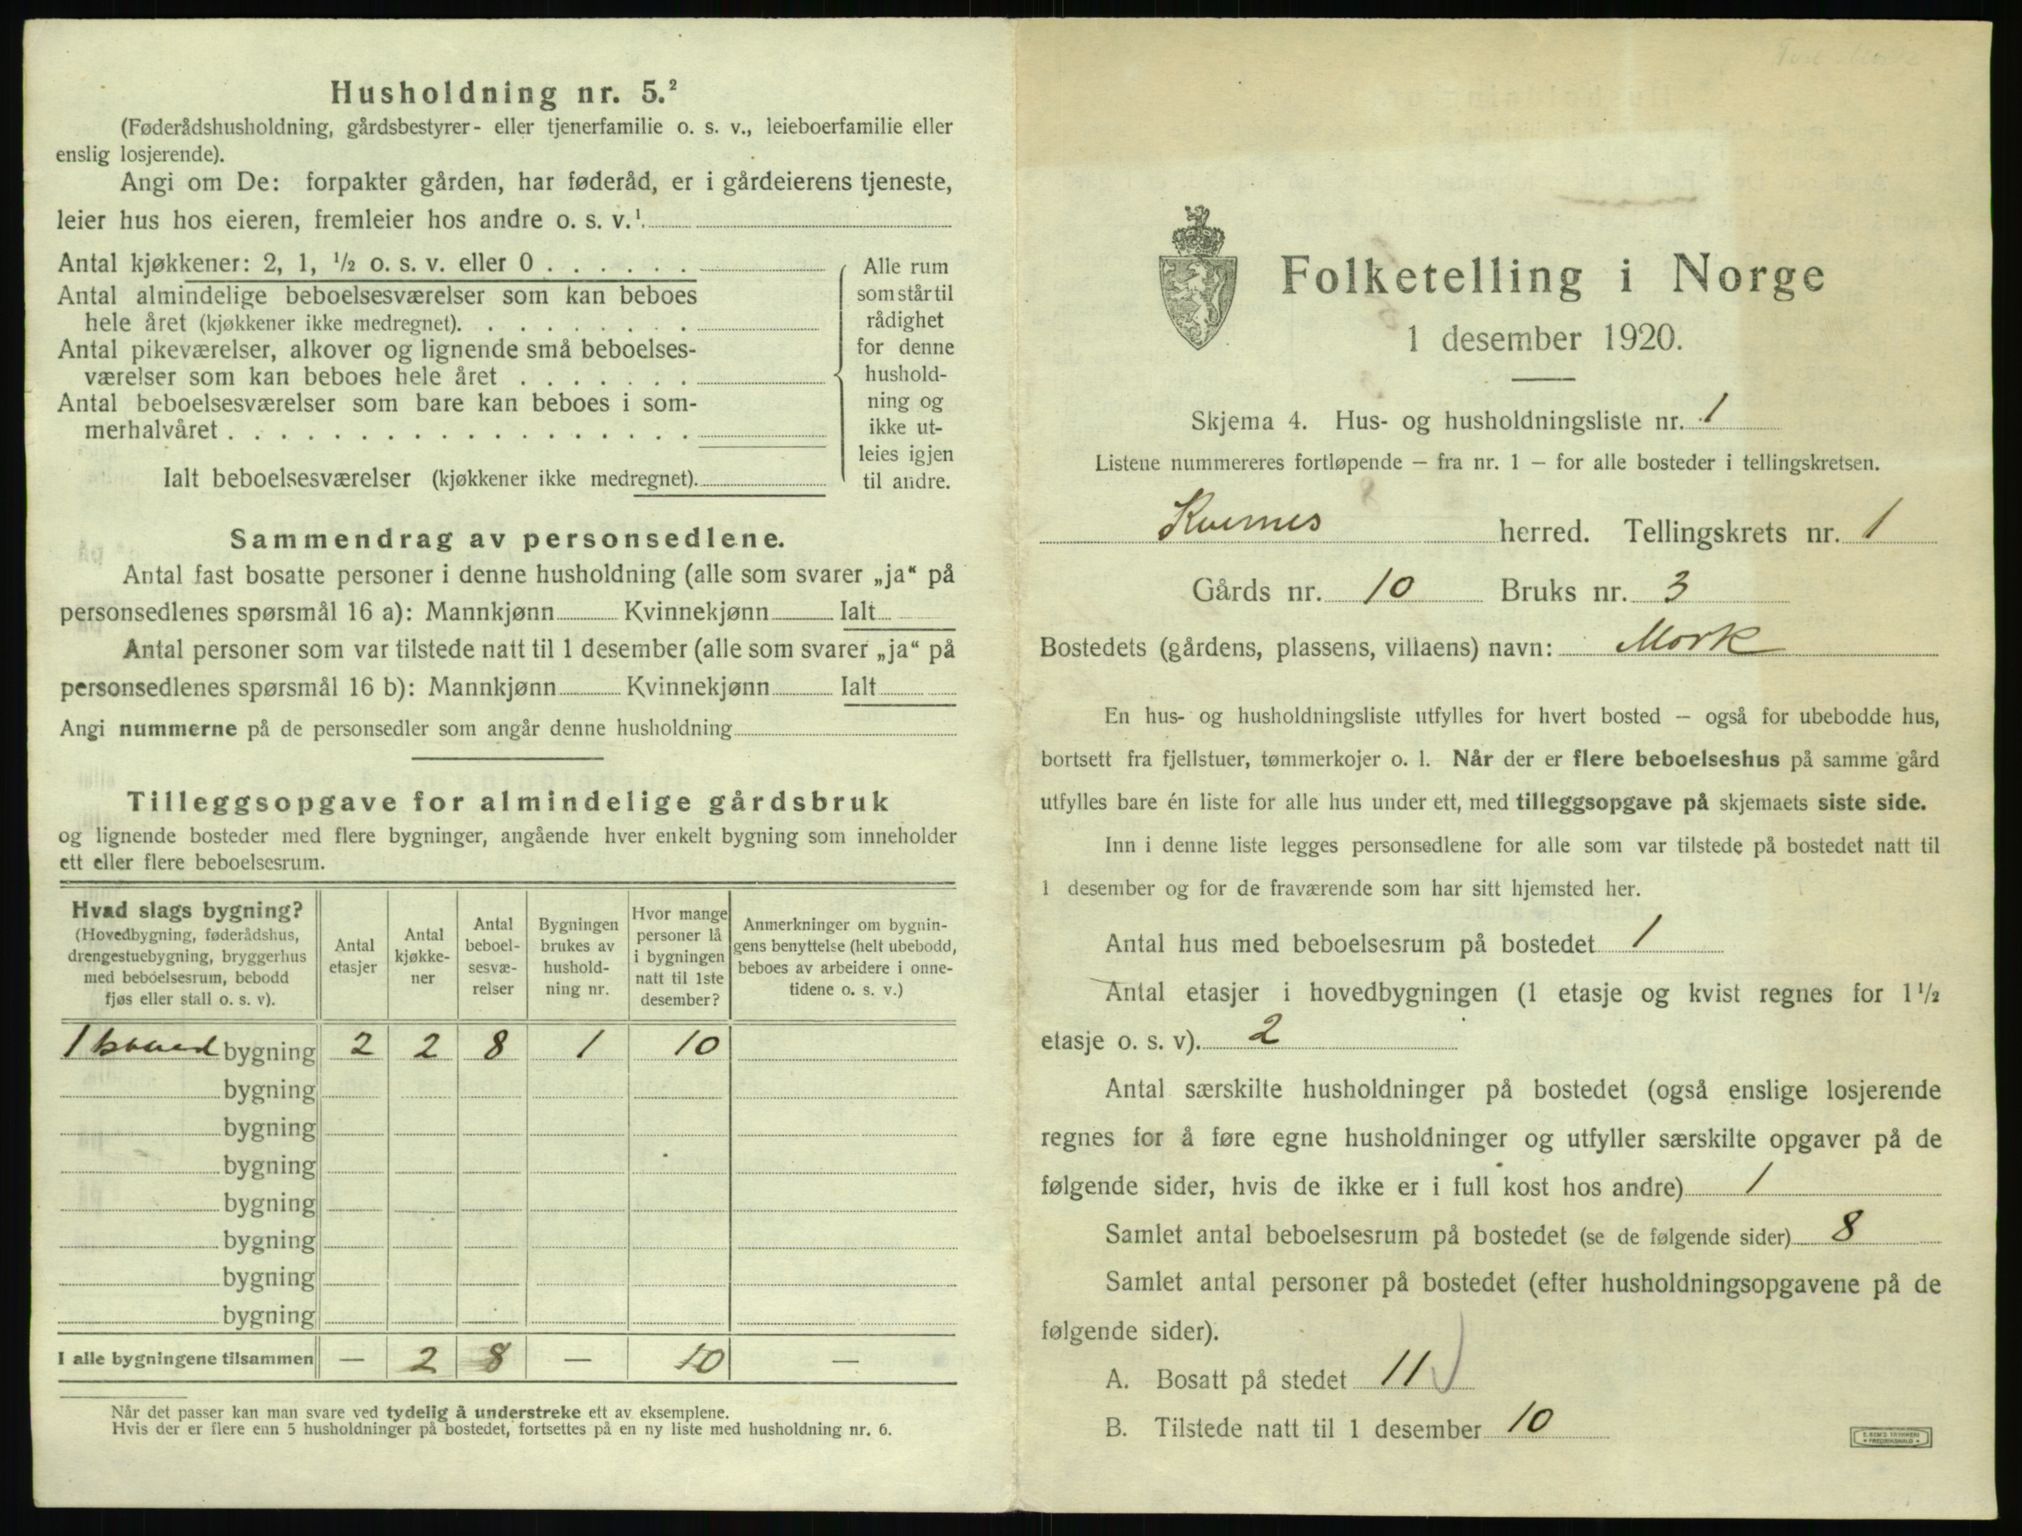 Husholdning nr. 5.²
(Føderådshusholdning, gårdsbestyrer- eller tjenerfamilie o. s. v., leieboerfamilie eller
enslig losjerende).
Angi om De: forpakter gården, har føderåd, er i gårdeierens tjeneste,
leier hus hos eieren, fremleier hos andre o. s. v.¹
Antal kjøkkener: 2, 1, ½ o. s. v. eller 0 . . . . . .
Antal almindelige beboelsesværelser som kan beboes
hele året (kjøkkener ikke medregnet). . . . . . . . .
Antal pikeværelser, alkover og lignende små beboelses-
værelser som kan beboes hele året . . . . . . .
Antal beboelsesværelser som bare kan beboes i som-
merhalvåret . . . . . . . . . . . . . . . . . .
Ialt beboelsesværelser (kjøkkener ikke medregnet).
Alle rum
som står til
rådighet
for denne
hushold-
ning og
ikke ut-
leies igjen
til andre.
Sammendrag av personsedlene.
Antal fast bosatte personer i denne husholdning (alle som svarer „ja“ på
personsedlenes spørsmål 16 a): Mannkjønn Kvinnekjønn Ialt
Antal personer som var tilstede natt til 1 desember (alle som svarer „ja“ på
personsedlenes spørsmål 16 b): Mannkjønn Kvinnekjønn Ialt
Angi nummerne på de personsedler som angår denne husholdning
Tilleggsopgave for almindelige gårdsbruk
og lignende bosteder med flere bygninger, angående hver enkelt bygning som inneholder
ett eller flere beboelsesrum.
Hvad slags bygning?
(Hovedbygning, føderådshus,
drengestuebygning, bryggerhus
med beboelsesrum, bebodd
fjøs eller stall o. s. v).
Antal
etasjer
Antal
kjøkke-
ner
Antal
beboel-
sesvæ-
relser
Bygningen
brukes av
hushold-
ning nr.
Hvor mange
personer lå
i bygningen
natt til 1ste
desember?
Anmerkninger om bygnin-
gens benyttelse (helt ubebodd,
beboes av arbeidere i onne-
tidene o. s. v.)
1 hoved bygning 2 2 8 1 10
bygning
bygning
bygning
bygning
bygning
bygning
bygning
I alle bygningene tilsammen — 2 8 — 10 —
Når det passer kan man svare ved tydelig å understreke ett av eksemplene.
Hvis der er flere enn 5 husholdninger på bostedet, fortsettes på en ny liste med husholdning nr. 6.
Folketelling i Norge
1 desember 1920.
Skjema 4. Hus- og husholdningsliste nr. 1
Listene nummereres fortløpende – fra nr. 1 – for alle bosteder i tellingskretsen.
Kvernes herred. Tellingskrets nr. 1
Gårds nr. 10 Bruks nr. 3
Bostedets (gårdens, plassens, villaens) navn: Mork
En hus- og husholdningsliste utfylles for hvert bosted – også for ubebodde hus,
bortsett fra fjellstuer, tømmerkojer o. l. Når der er flere beboelseshus på samme gård
utfylles bare én liste for alle hus under ett, med tilleggsopgave på skjemaets siste side.
Inn i denne liste legges personsedlene for alle som var tilstede på bostedet natt til
1 desember og for de fraværende som har sitt hjemsted her.
Antal hus med beboelsesrum på bostedet 1
Antal etasjer i hovedbygningen (1 etasje og kvist regnes for 1½
etasje o. s. v). 2
Antal særskilte husholdninger på bostedet (også enslige losjerende
regnes for å føre egne husholdninger og utfyller særskilte opgaver på de
følgende sider, hvis de ikke er i full kost hos andre) 1
Samlet antal beboelsesrum på bostedet (se de følgende sider) 8
Samlet antal personer på bostedet (efter husholdningsopgavene på de
følgende sider).
A. Bosatt på stedet 11
B. Tilstede natt til 1 desember 10